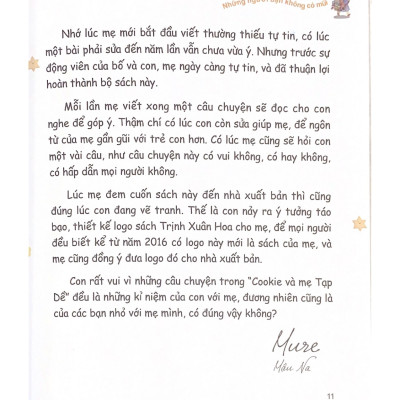 Những người bạn không có mũi
Nhớ lúc mẹ mới bắt đầu viết thường thiếu tự tin, có lúc
một bài phải sửa đến năm lần vẫn chưa vừa ý. Nhưng trước sự
động viên của bố và con, mẹ ngày càng tự tin, và đã thuận lợi
hoàn thành bộ sách này.
Mỗi lần mẹ viết xong một câu chuyện sẽ đọc cho con
nghe để góp ý. Thậm chí có lúc con còn sửa giúp mẹ, để ngôn
từ của mẹ gần gũi với trẻ con hơn. Có lúc mẹ cũng sẽ hỏi con
một vài câu, như câu chuyện này có vui không, có hay không,
có hấp dẫn mọi người không.
Lúc mẹ đem cuốn sách này đến nhà xuất bản thì cũng
đúng lúc con đang vẽ tranh. Thế là con nảy ra ý tưởng táo
bạo, thiết kế logo sách Trịnh Xuân Hoa cho mẹ, để mọi người
đều biết kể từ năm 2016 có logo này mới là sách của mẹ, và
mẹ cũng đồng ý đưa logo đó cho nhà xuất bản.
Con rất vui vì những câu chuyện trong "Cookie và mẹ Tạp
Dề" đều là những kỉ niệm của con với mẹ, đương nhiên cũng là
của các bạn nhỏ với mẹ mình, có đúng vậy không?
Mure
Mân Na
11